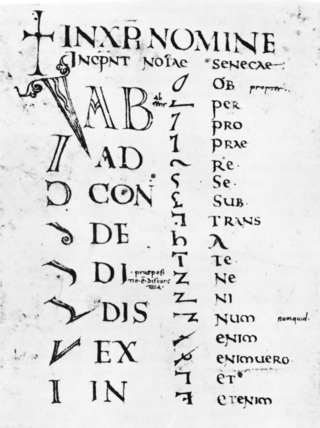 IN XPI NOMINE
INCIPNT NOTAE SENECAE
AB
AD
CON
DE
DI
DIS
EX
IN
OB propter
PER
PRO
PRAE
RE
SE
SUB
TRANS
A
TE
NE
NI
NUM numquid
ENIM
ENIMUERO
ET
ETENIM